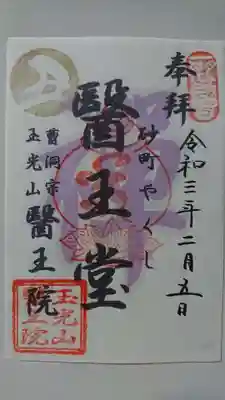 奉拝
令和三年二月五日
砂町やくし
醫王堂
曹洞宗
玉光山
醫王院
玉光山
醫王院